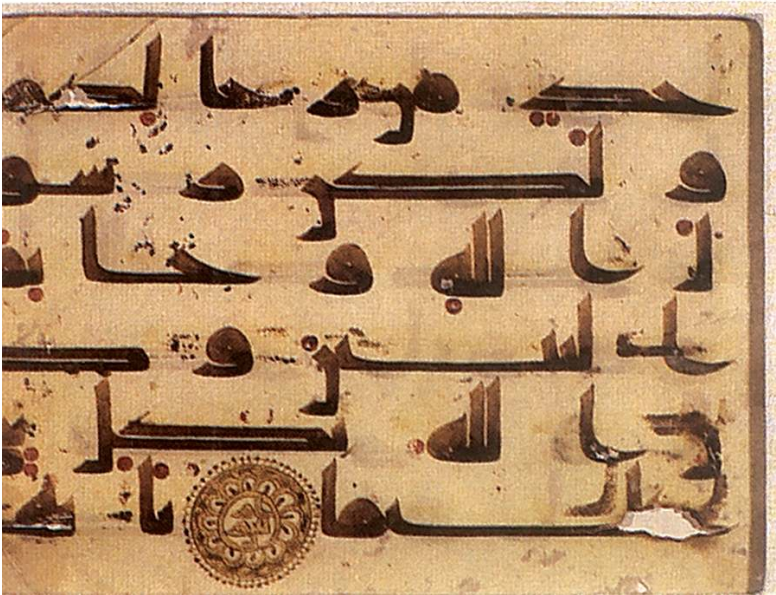 حد من رجالكم
ولكن رسو
ل الله وخاتم
النبين وكا
ن الله بكل شي
عليما يايها